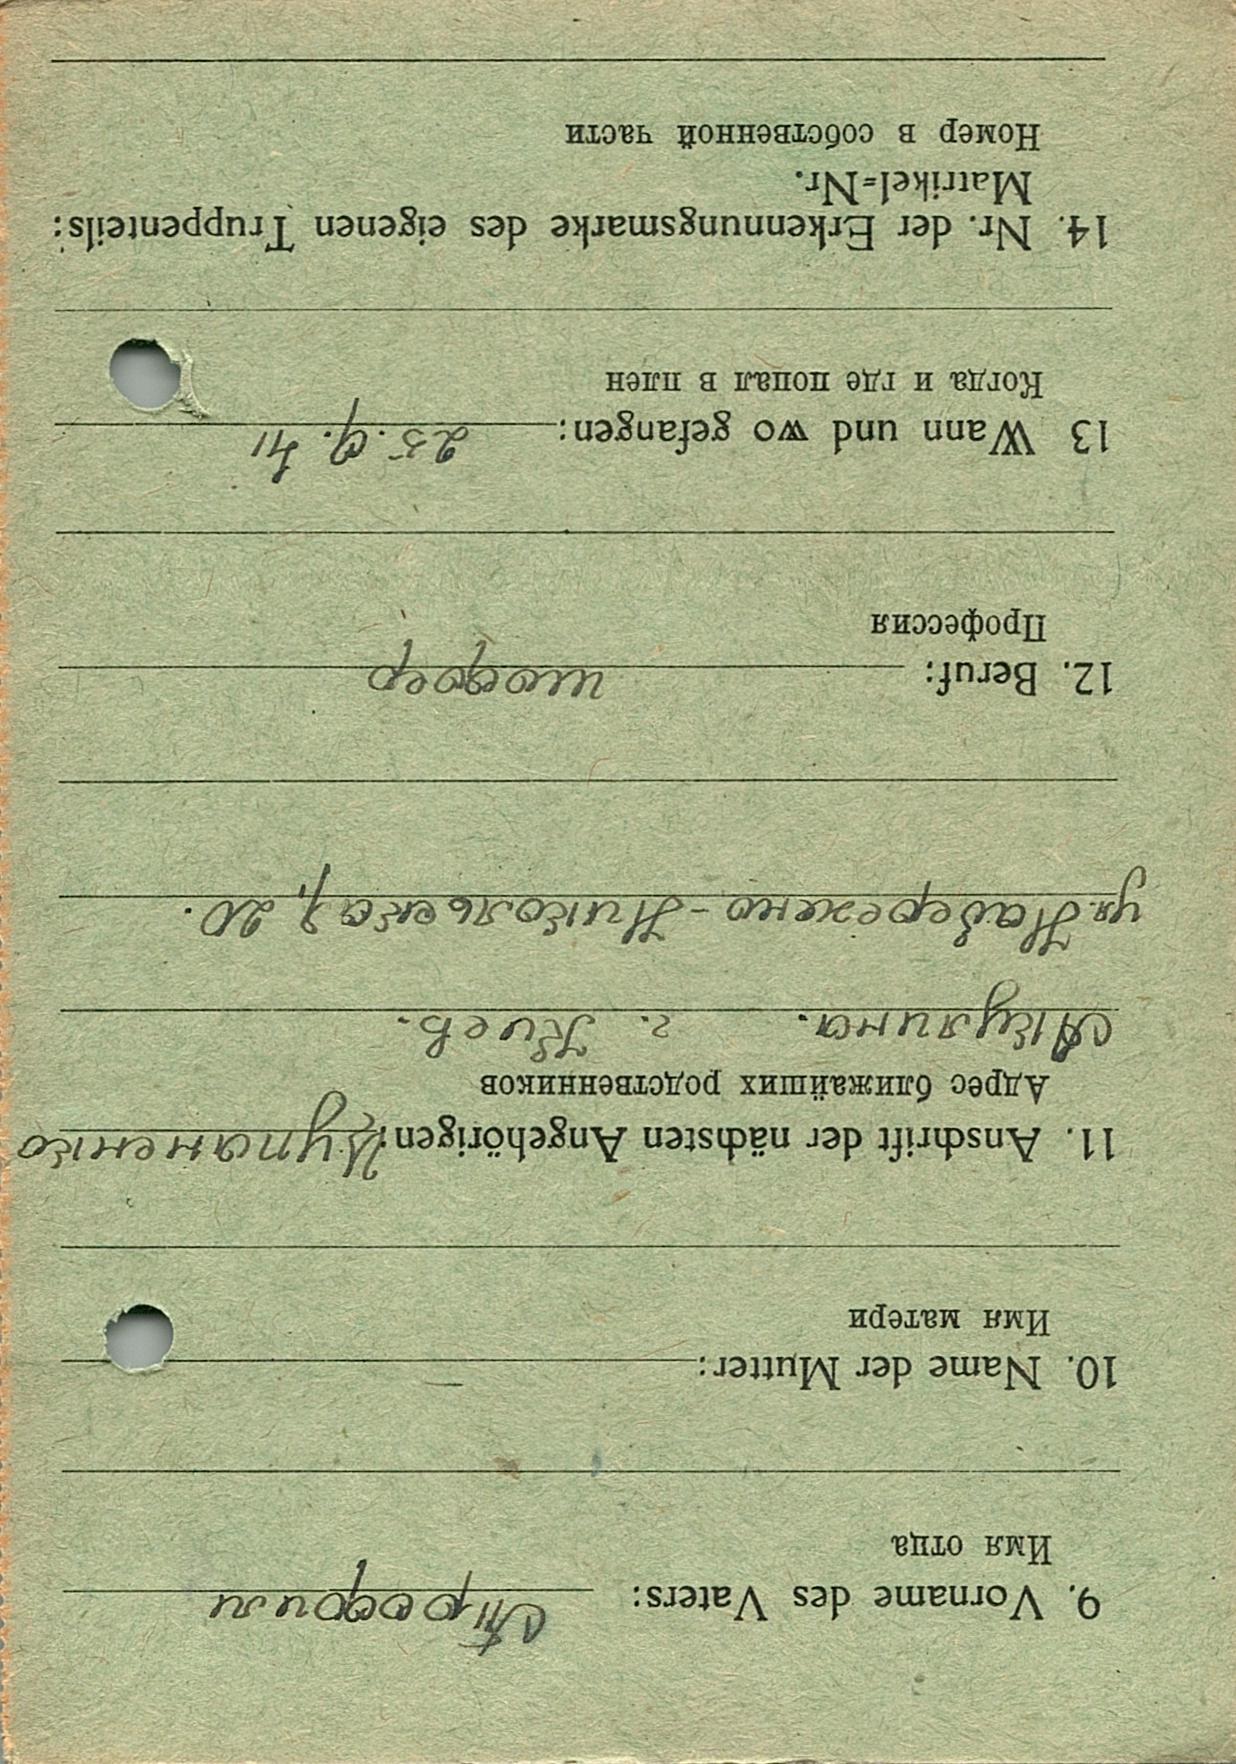 9. Vorname des Vaters: Трофим
Имя отца
10. Name der Mutter: —
Имя матери
11. Anschrift der nächsten Angehörigen:
Адрес ближайших родственников
Акулина. г. Киев.
ул. Набережно-Никольская, 20.
12. Beruf: шофер
Профессия
13 Wann und wo gefangen: 25. 9. 41
Когда и где попал в плен
14. Nr. der Erkennungsmarke des eigenen Truppenteils:
Matrikel=Nr.
Номер в собственной части